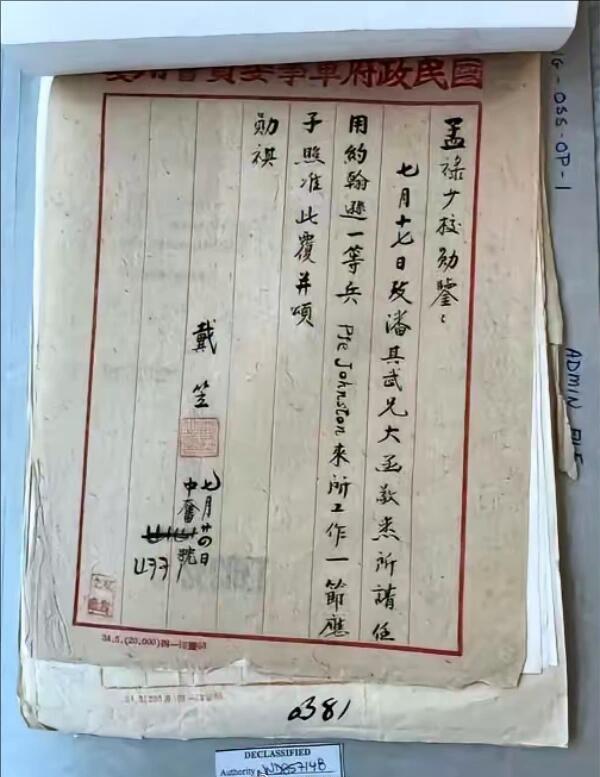 國民政府軍事委員會用箋
孟祿少校勛鑒:
七月十七日致潘其武兄大函敬悉所請任
用約翰遜一等兵 Pfc Johnston 來所工作一節應
予照准此覆并頌
勛祺
戴笠
七月廿四日
中奮 號
34.5.(20,000)
0381
NG-OSS-OP-1
ADMIN
DECLASSIFIED
Authority NND857148